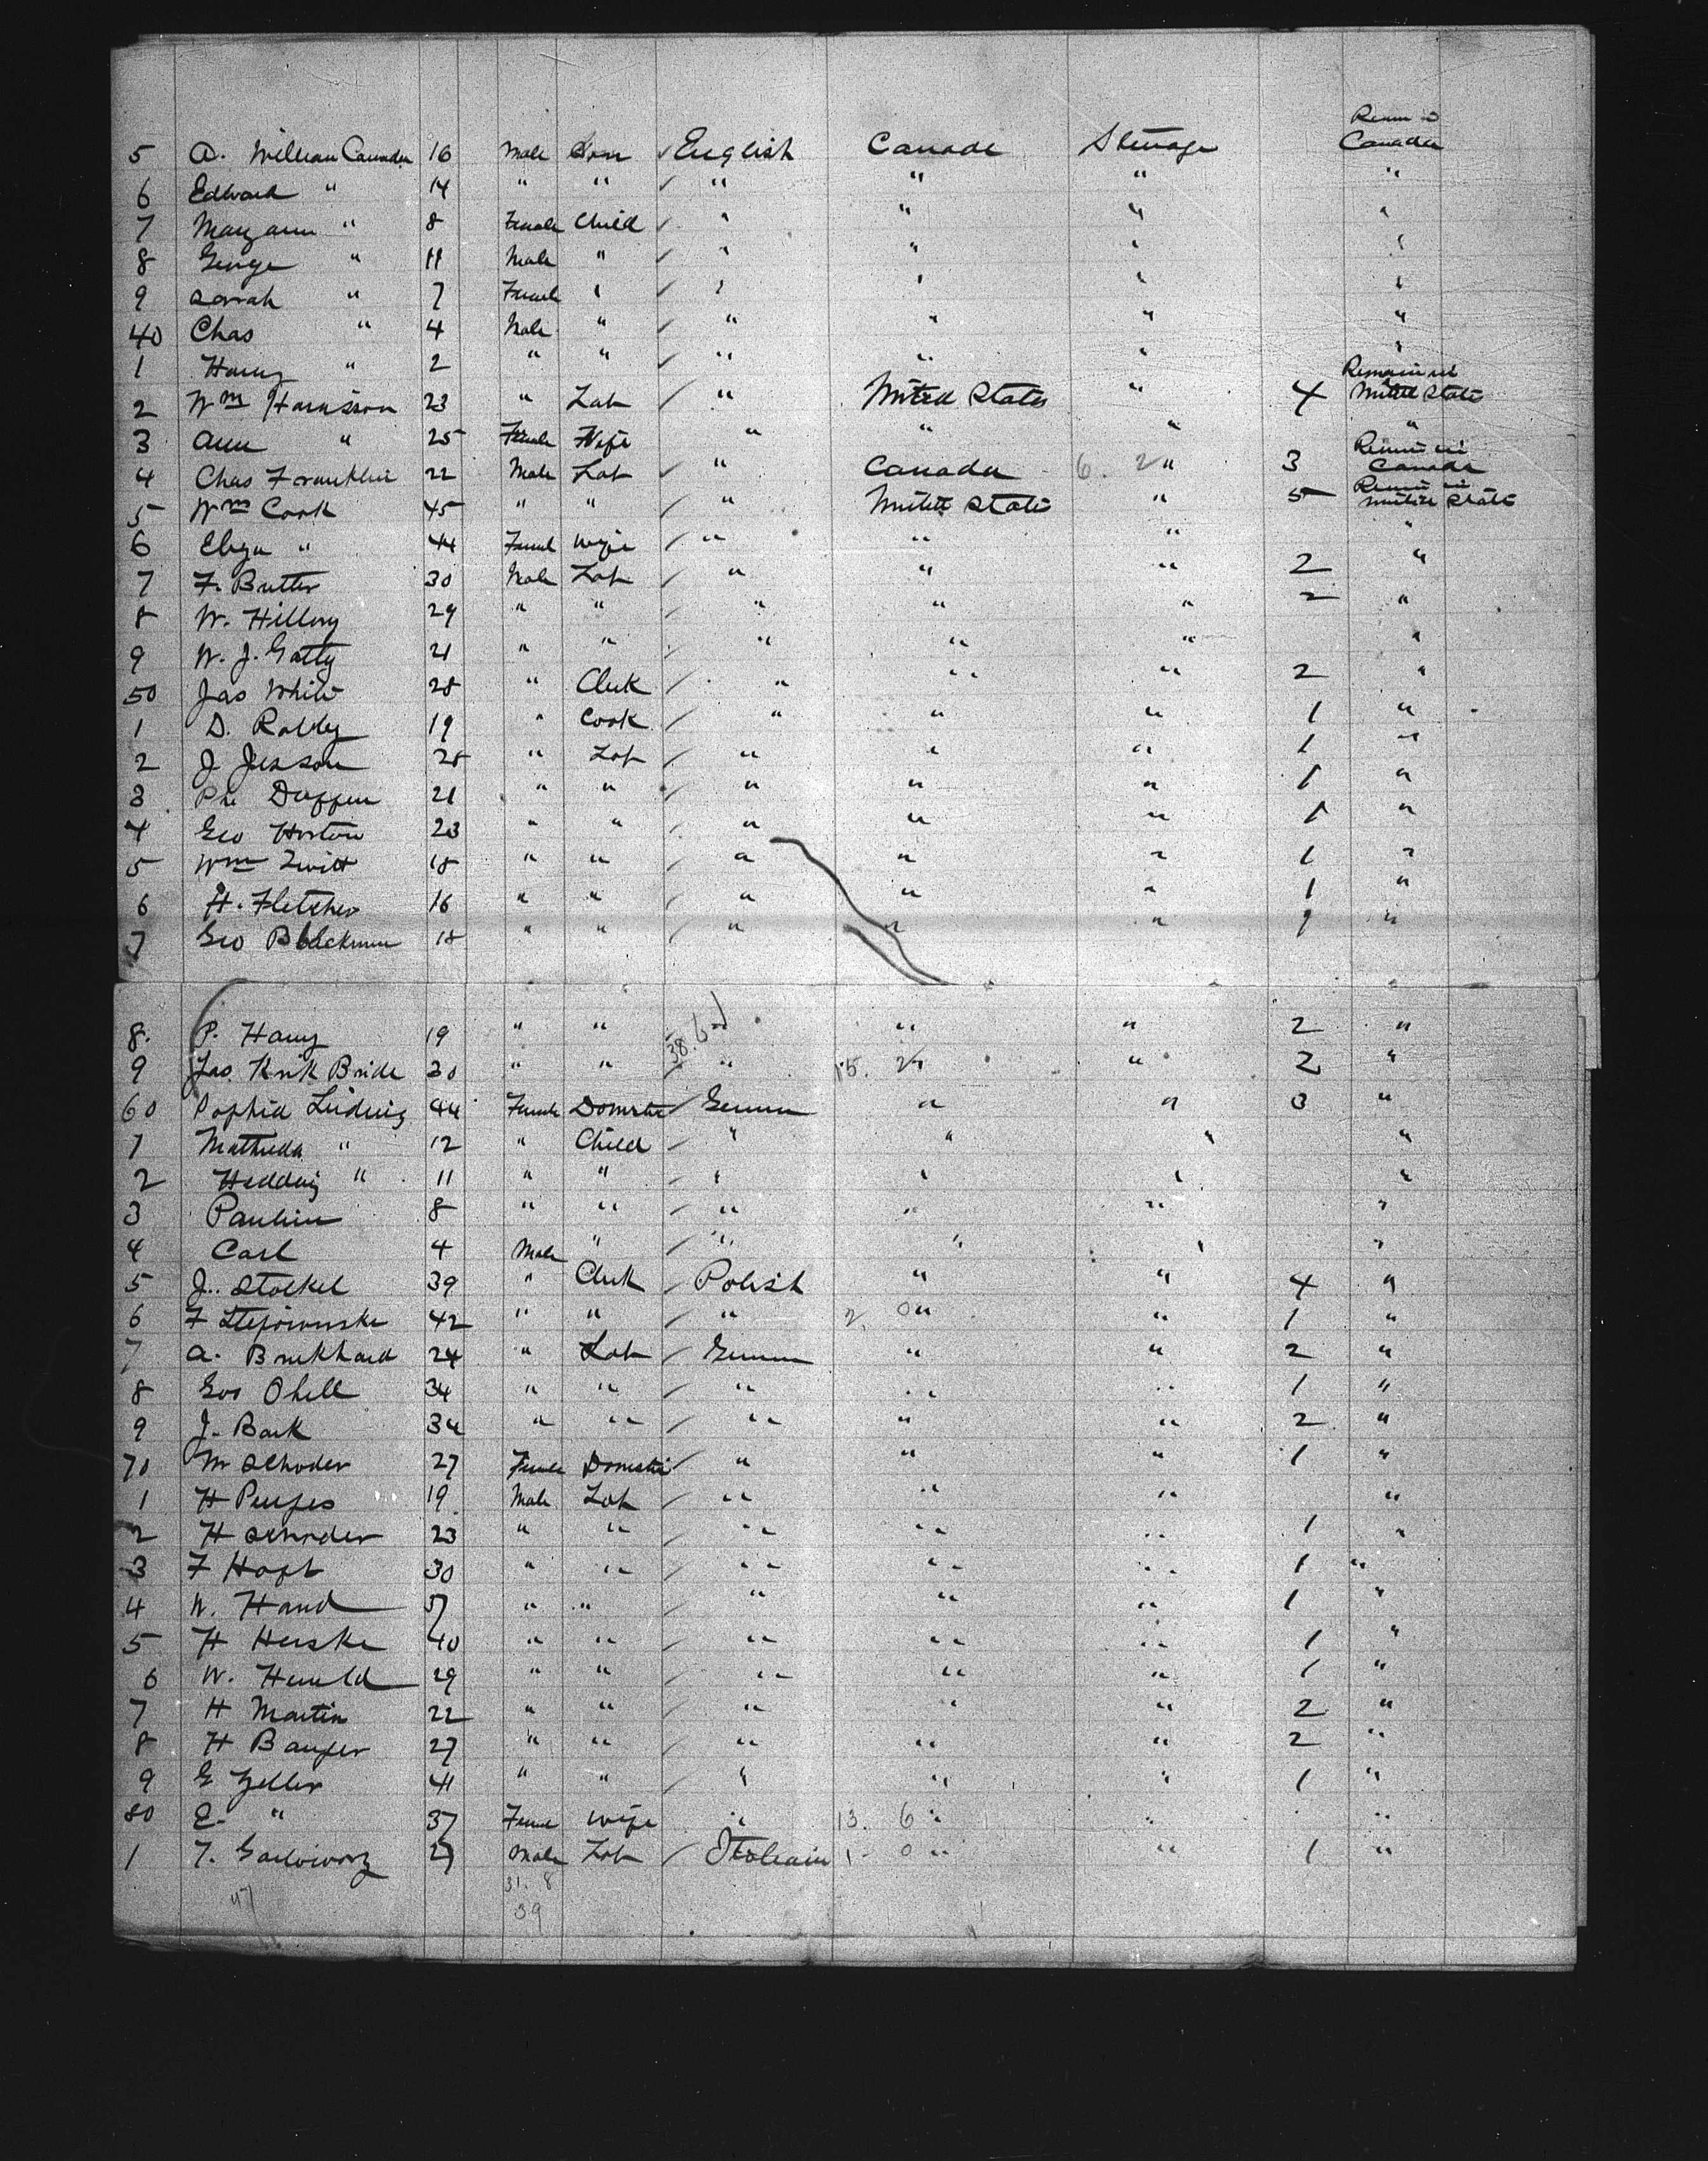 Remn in
5 A. William Canada 16 Male Son English Canada Steerage Canada
6 Edward " 14 " " " " " "
7 Maryann " 8 Female Child " " " "
8 George " 11 Male " " " " "
9 Sarah " 7 Female " " " " "
40 Chas " 4 Male " " " " "
1 Harry " 2 " " " " " "
Remain in
2 Wm Harrison 23 " Lab " United States " 4 United State
3 Ann " 25 Female Wife " " " "
Remn in
4 Chas Franklin 22 Male Lab " Canada 6. 2 " 3 Canada
Remn in
5 Wm Cook 45 " " " United State " 5 United State
6 Eliza " 44 Femal Wife " " " "
7 F. Butter 30 Male Lab " " " 2 "
8 W. Hillory 29 " " " " " 2 "
9 W. J. Gatty 21 " " " " " "
50 Jas White 28 " Clerk " " " 2 "
1 D. Robley 19 " Cook " " " 1 "
2 J Jesson 28 " Lab " " " 1 "
3 21 " " " " " 1 "
4 Geo Horton 23 " " " " " 1 "
5 Wm 18 " " " " " 1 "
6 H. Fletcher 16 " " " " " 1 "
7 Geo Blackmun 18 " " " " " 1 "
8. P. Harry 19 " " 38. 6 " " " 2 "
9 Jas. Kirk Bride 30 " " " 15. 2 " " 2 "
60 Sophia Ludwig 44 Female Domestic German " " 3 "
1 Mathilda " 12 " Child " " " "
2 Hedwig " 11 " " " " " "
3 Paulin 8 " " " " " "
4 Carl 4 Male " " " " "
5 J. Stockel 39 " Clerk Polish " " 4 "
6 F 42 " " " 2. 0 " " 1 "
7 A. Burkhard 24 " Lab German " " 2 "
8 Geo Ohell 34 " " " " " 1 "
9 J. Bark 34 " " " " " 2 "
70 M Schoder 27 Female Domestic " " " 1 "
1 H 19 Male Lab " " " "
2 H Schroder 23 " " " " " 1 "
3 F Hopt 30 " " " " " 1 "
4 W. Hand 37 " " " " " 1 "
5 H Herske 40 " " " " " 1 "
6 W. Herrold 29 " " " " " 1 "
7 H Martin 22 " " " " " 2 "
8 H 27 " " " " " 2 "
9 G Zeller 41 " " " " " 1 "
80 E. " 37 Femal Wife " 13. 6 " " "
1 T. 27 Male Lab Italian 1 0 " " 1 "
31. 8
47 39